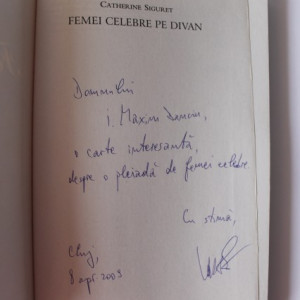 CATHERINE SIGURET
FEMEI CELEBRE PE DIVAN
Domnului
I. Maxim Danciu,
o carte interesantă,
despre o pleiadă de femei celebre
Cu stimă,
Cluj,
8 apr 2003